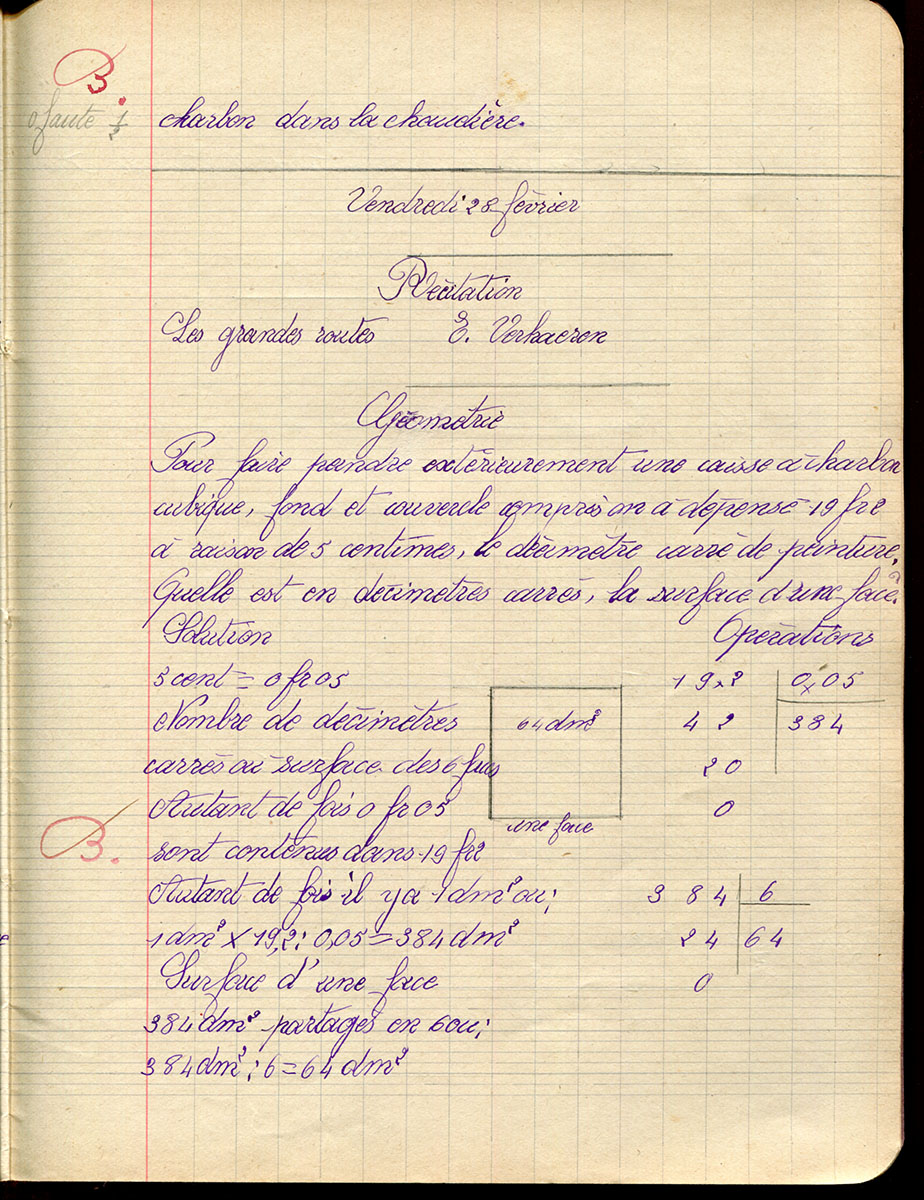 3.
0 faute 1/2
charbon dans la chaudière.
Vendredi 28 février
Récitation
Les grandes routes E. Verhaeren
Géométrie
Pour faire peindre extérieurement une caisse à charbon
cubique, fond et couvercle compris on à dépensé 19 fr 2
à raison de 5 centimes, le décimètre carré de peinture.
Quelle est en décimètres carrés, la surface d'une face?
Solution Opérations
5 cent = 0 fr 05
19,2 0,05
Nombre de décimètres
64 dm²
42 384
carrés ou surface des 6 faces
20
Autant de fois 0 fr 05
0
une face
3.
sont contenus dans 19 fr 2
Autant de fois il y a 1 dm² ou;
384 6
1 dm² × 19,2 : 0,05 = 384 dm²
24 64
Surface d'une face
0
384 dm² partagés en 6 ou;
384 dm² : 6 = 64 dm²